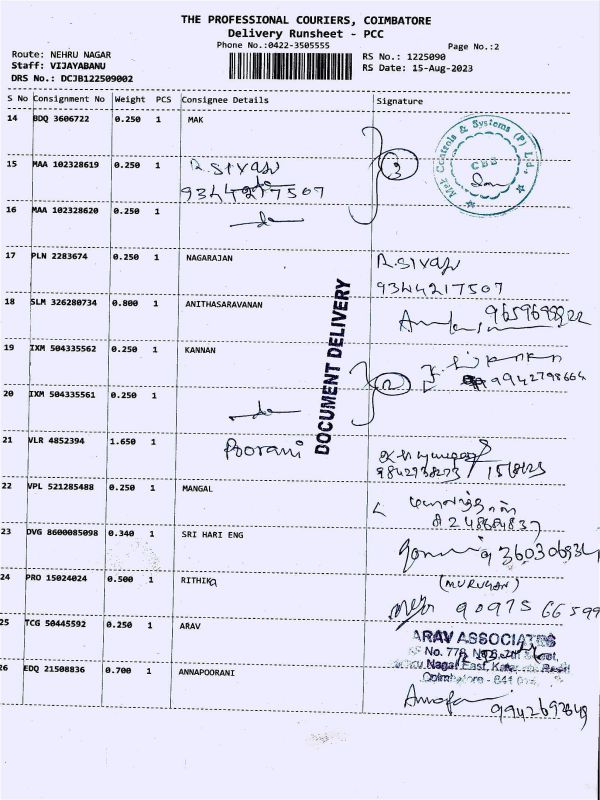 THE PROFESSIONAL COURIERS, COIMBATORE
Delivery Runsheet - PCC
Phone No.:0422-3505555
Page No.:2
Route: NEHRU NAGAR
Staff: VIJAYABANU
DRS No.: DCJB122509002
RS No.: 1225090
RS Date: 15-Aug-2023
S No Consignment No Weight PCS Consignee Details Signature
14 BDQ 3606722 0.250 1 MAK
Met Controls & Systems (P) Ltd.,
CBE
15 MAA 102328619 0.250 1 R.Sivaj 3
9344217507
16 MAA 102328620 0.250 1
17 PLN 2283674 0.250 1 NAGARAJAN R.Sivaj
9344217507
18 SLM 326280734 0.800 1 ANITHASARAVANAN 9659698822
19 IXM 504335562 0.250 1 KANNAN
9942798664
20 IXM 504335561 0.250 1 2
DOCUMENT DELIVERY
21 VLR 4852394 1.650 1 Poorani
9842938273 15/8/23
22 VPL 521285488 0.250 1 MANGAL
8248684837
23 DVG 8600085098 0.340 1 SRI HARI ENG
9360306934
24 PRO 15024024 0.500 1 RITHIKA (MURUGAN)
90975 66599
25 TCG 50445592 0.250 1 ARAV ARAV ASSOCIATES
No. 778,
Nagar East,
Coimbatore - 641
26 EDQ 21508836 0.700 1 ANNAPOORANI
9942692849